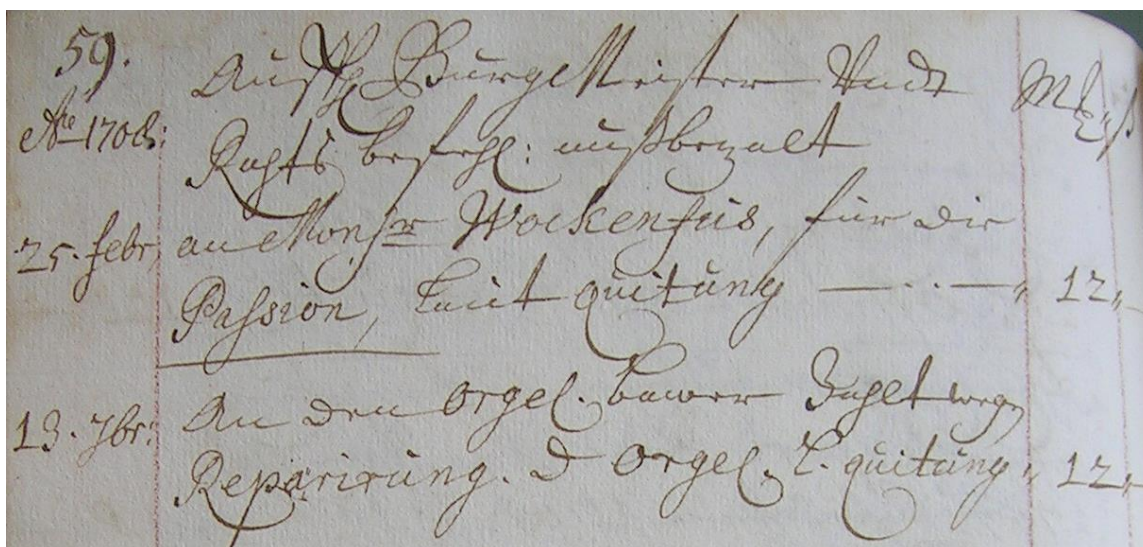 59.
Auff H. BurgeMeister Undt
Mꝃ ß
Ao 1708:
Rahts befehl: außbezalt
25. febr,
an Monsr Wockenfus, für die
Passion, Laut quitung — · — " 12 "
13. 7br:
An den Orgel. bawer Zahlt wegen
Reparirung. d Orgel. L. quitung " 12 "